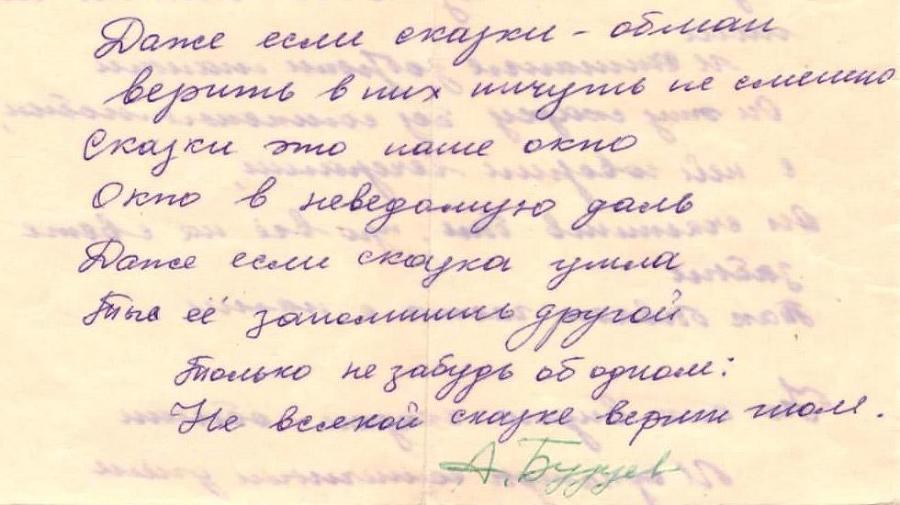 Даже если сказки - обман
верить в них ничуть не смешно
Сказки это наше окно
Окно в неведомую даль
Даже если сказка ушла
Ты её запомнишь другой
Только не забудь об одном:
Не всякой сказке верят
А. Бузуев